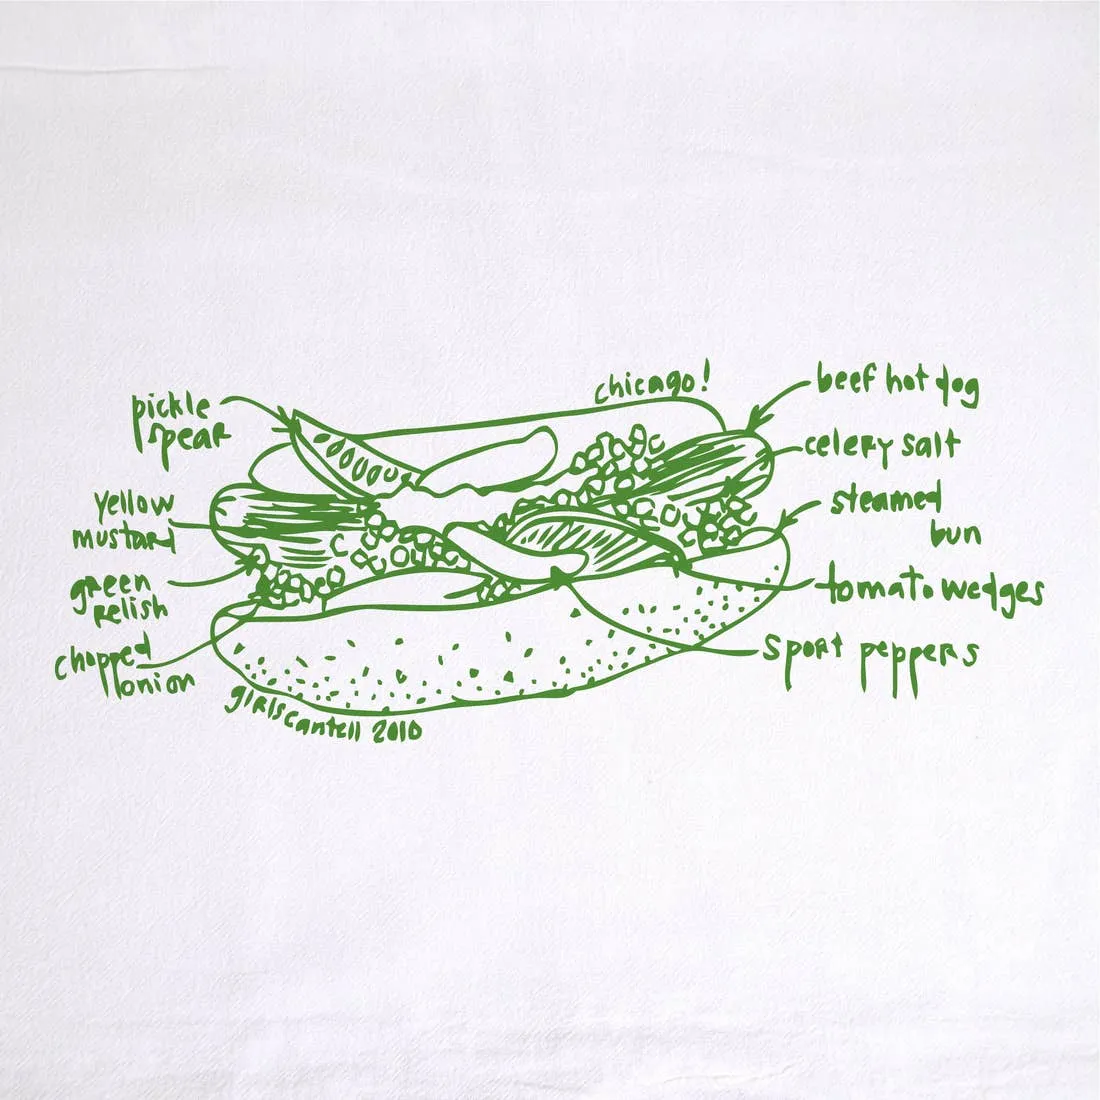 chicago!
pickle
spear
yellow
mustard
green
relish
chopped
onion
beef hot dog
celery salt
steamed
bun
tomato wedges
sport peppers
girlscantell 2010